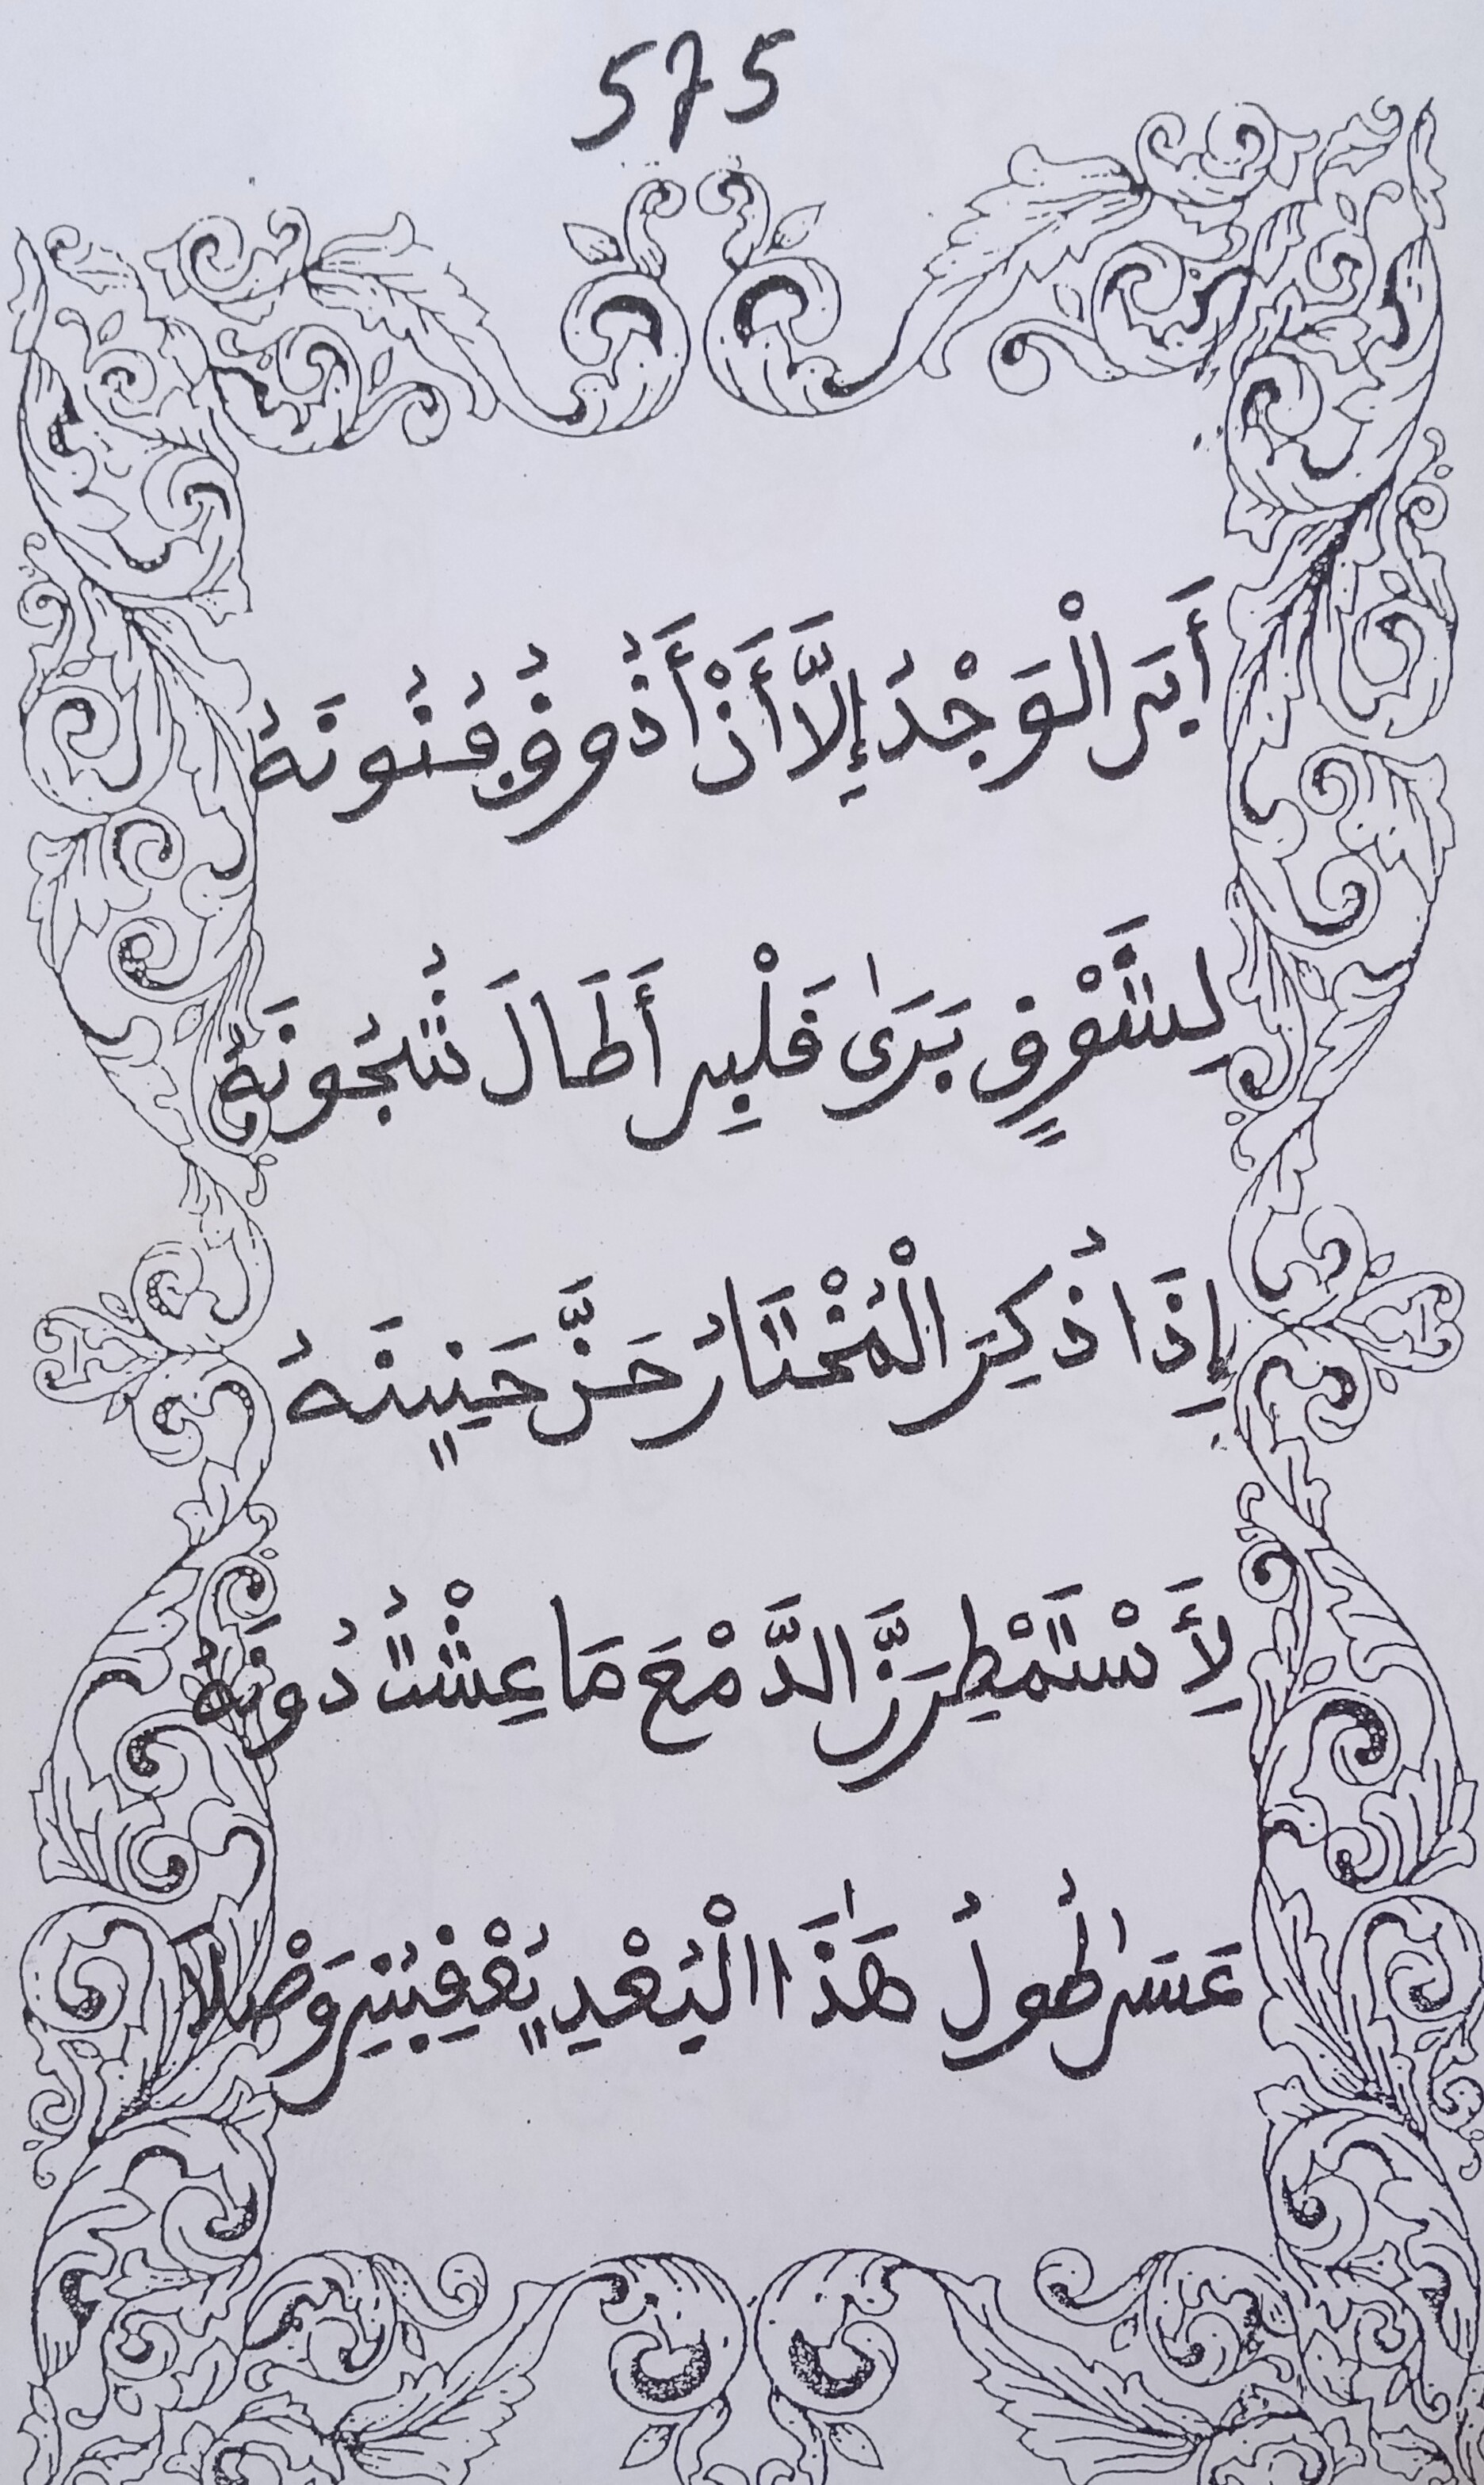 575
أَبَى الْوَجْدُ إِلَّا أَنْ أَذُوقَ فُنُونَهُ
لِشَوْقٍ بَرَىٰ قَلْبِي أَطَالَ شُجُونَهُ
إِذَا ذُكِرَ الْمُخْتَارُ حَنَّ حَنِينَهُ
لِأَسْتَمْطِرَنَّ الدَّمْعَ مَا عِشْتُ دُونَهُ
عَسَىٰ طُولُ هَٰذَا الْبُعْدِ يُعْقِبُنِي وَصْلَا